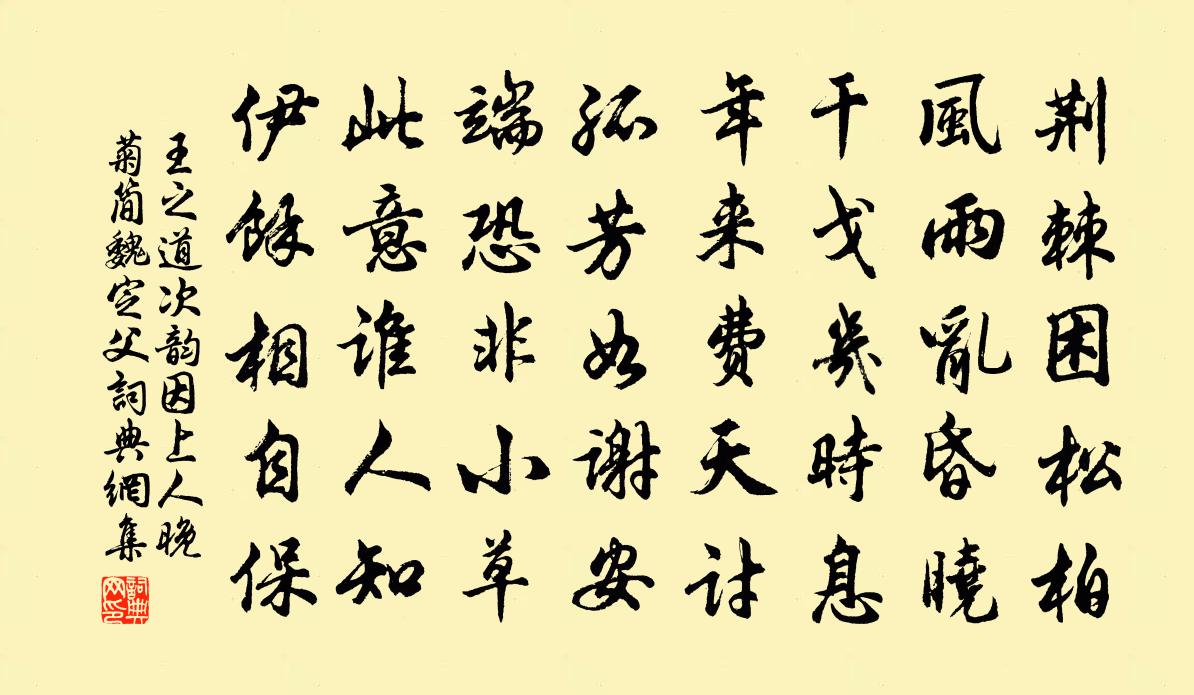 荆棘困松柏
風雨亂昏曉
干戈幾時息
年来費天討
孤芳如謝安
端恐非小草
此意誰人知
伊餘相自保
王之道次韵因上人晚
菊简魏定父詞典網集
詞典网印